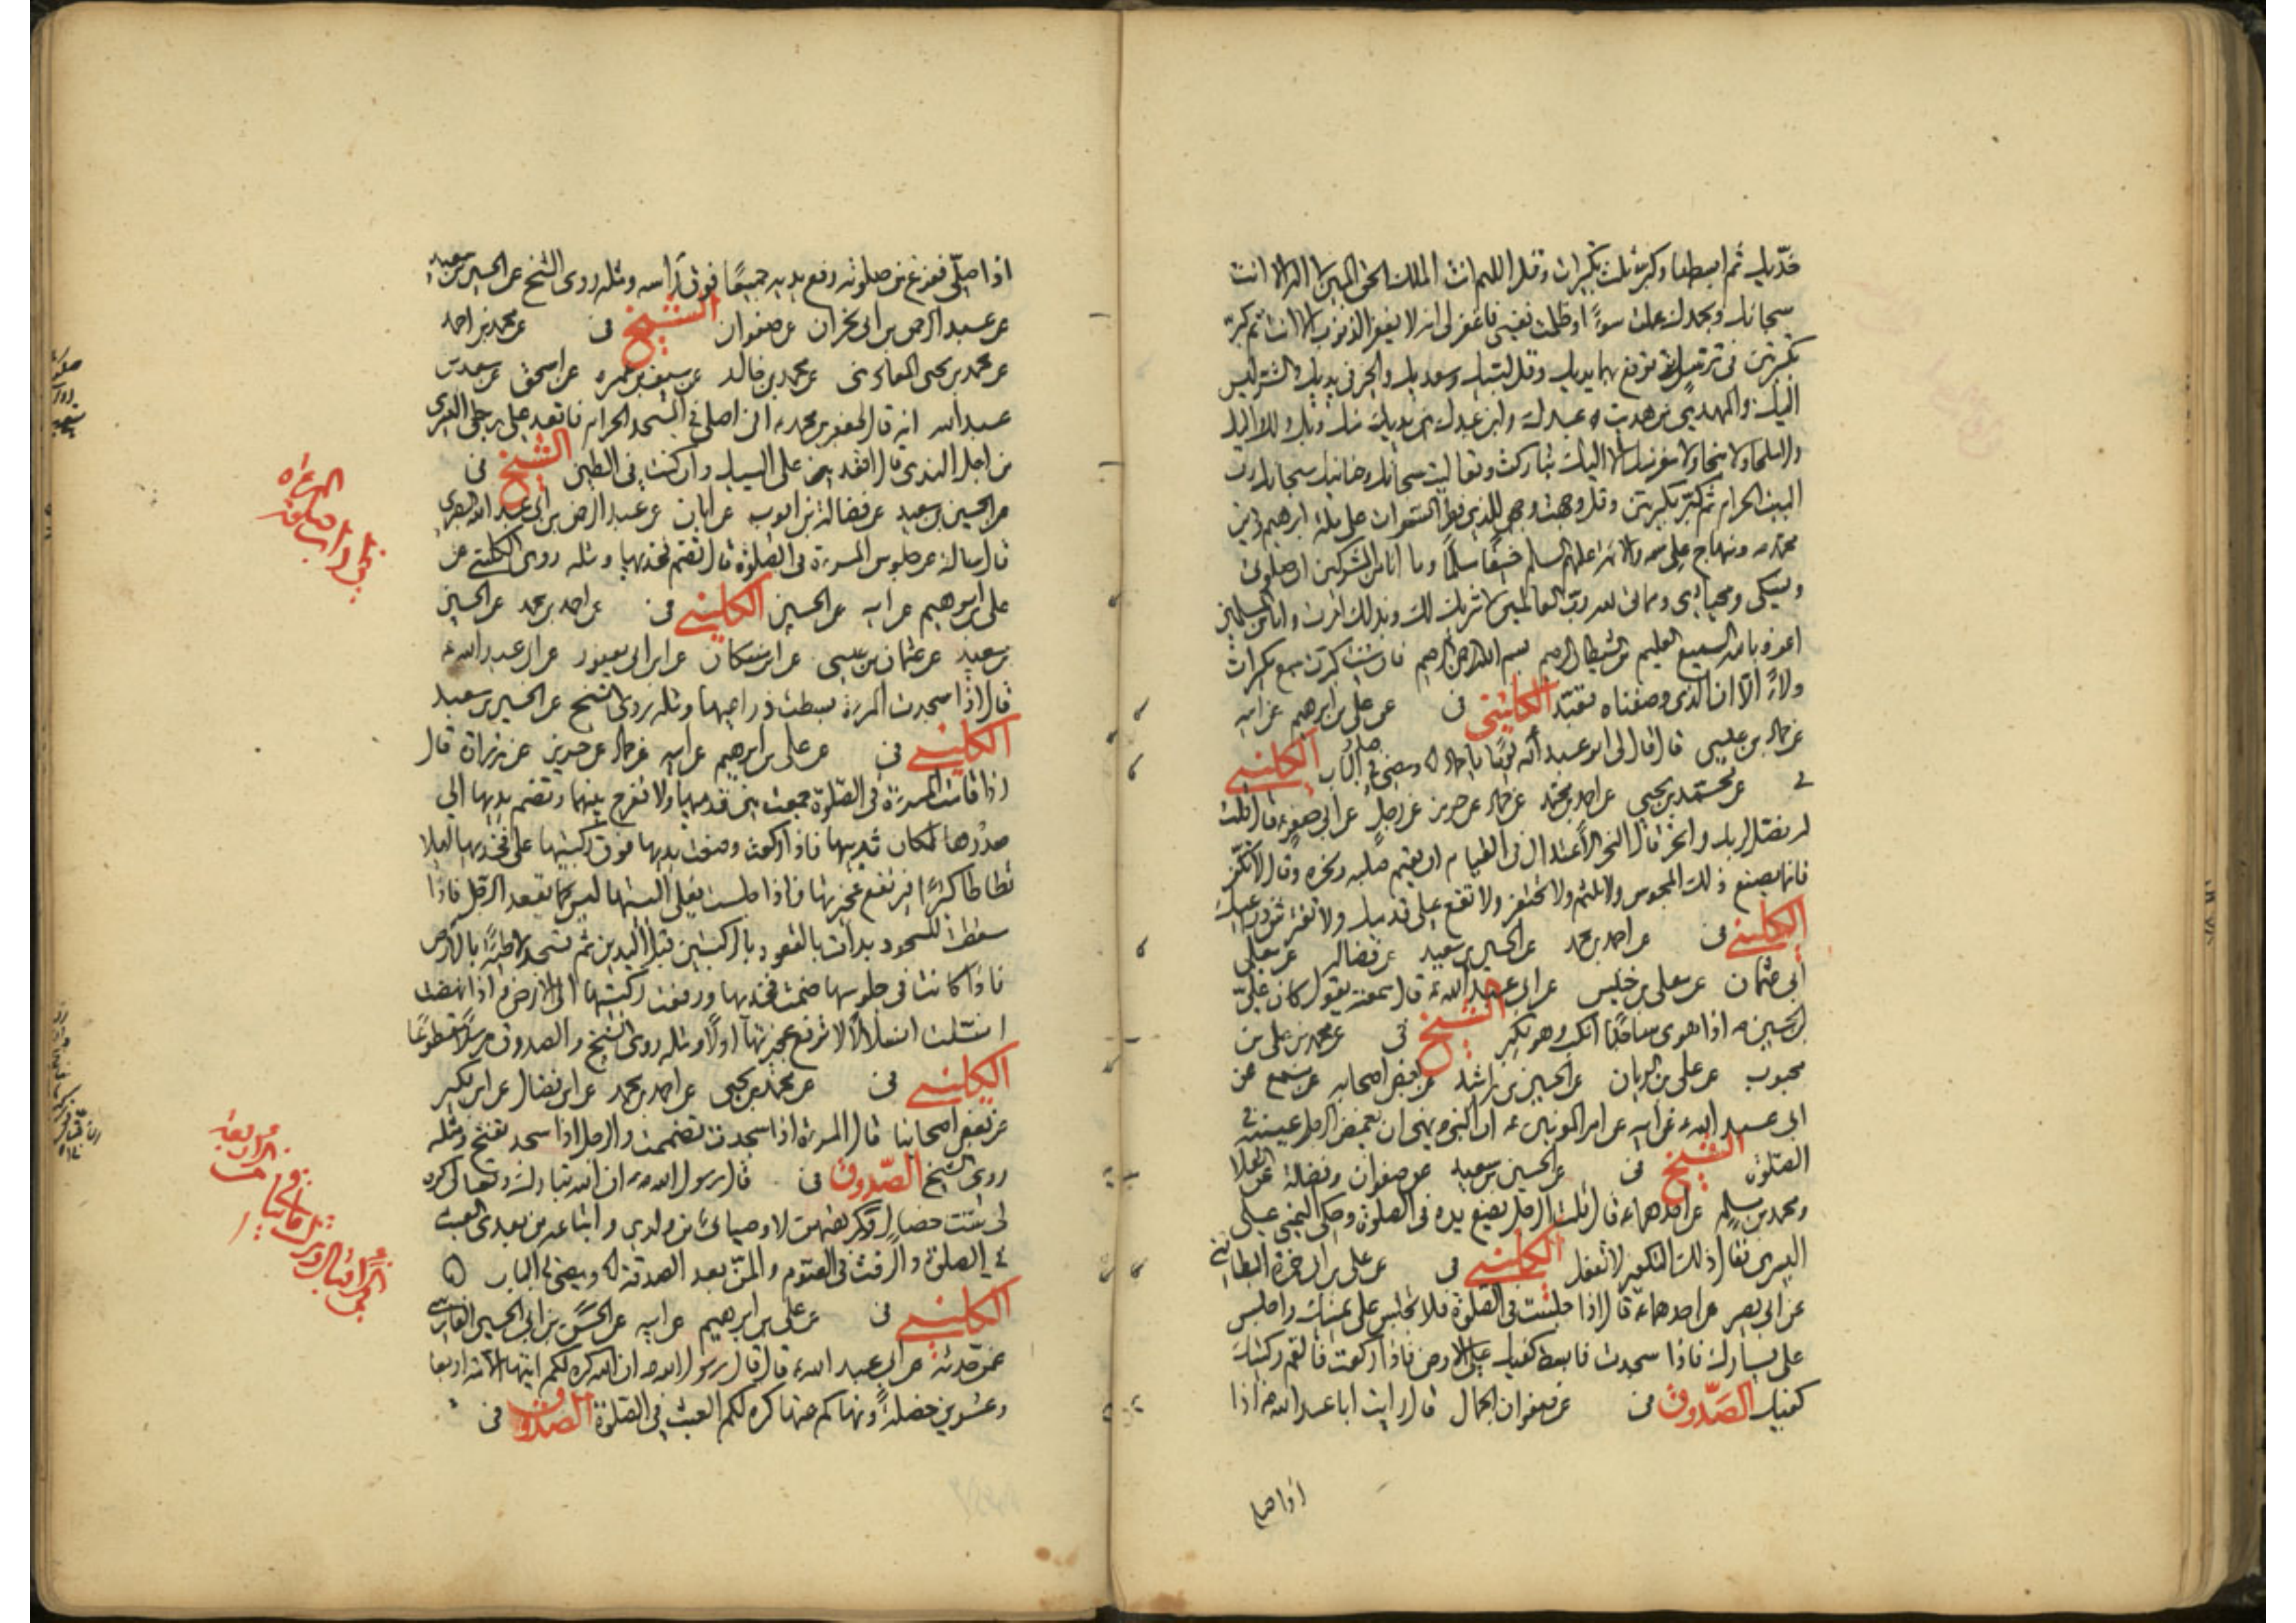 خدّيك ثم ابسطها وكبر ثلث تكبيرات وقل اللهم انت الملك الحق المبين لا اله الا انت
سبحانك وبحمدك عملت سوءًا وظلمت نفسي فاغفر لي انه لا يغفر الذنوب الا انت ثم كبر
تكبرتين في ترتيل ترفع بهما يديك وقل لبيك وسعديك والخير في يديك والشر ليس
اليك والمهدي من هديت عبدك وابن عبدك بين يديك منك وبك ولك واليك
ولا ملجا ولا منجا ولا مفر منك الا اليك تباركت وتعاليت سبحانك وحنانيك سبحانك رب
البيت الحرام ثم كبر تكبيرتين وقل وجهت وجهي للذي فطر السموات على ملة ابرهيم ودين
محمد ص ومنهاج علي حنيفًا مسلمًا وما انا من المشركين ان صلوتي
ونسكي ومحياي ومماتي لله رب العالمين لا شريك له وبذلك امرت وانا من المسلمين
اعوذ بالله السميع العليم من الشيطان الرجيم بسم الله الرحمن الرحيم فان شئت كبرت سبع تكبيرات
ولاءً الا ان الذي وصفناه الكليني في عن علي بن ابرهيم عن ابيه
عن حماد بن عيسى قال قال لي ابو عبد الله يومًا يا حماد الكليني
في عن محمد بن يحيى عن احمد بن محمد عن حماد عن حريز عن رجل عن ابي جعفر ع قال قلت
له فصل لربك وانحر قال النحر الاعتدال في القيام ان يقيم صلبه ونحره وقال لا تكفر
فانما يصنع ذلك المجوس ولا تلثم ولا تحتفز ولا تقع على قدميك ولا تفترش ذراعيك
الكليني في عن احمد بن محمد عن الحسين بن سعيد عن فضاله عن معلى
ابي عثمان عن معلى بن خنيس عن ابي عبد الله ع قال سمعته يقول كان علي
بن الحسين ع اذا هوى ساجدًا انكب وهو يكبر الشيخ في عن محمد بن علي بن
محبوب عن علي بن الريان عن الحسين بن راشد عن بعض اصحابه عن مسمع عن
ابي عبد الله ع عن ابيه عن امير المومنين ع ان النبي ص نهى ان يغمض الرجل عينيه في
الصلوة الشيخ في عن الحسين بن سعيد عن صفوان وفضالة عن العلا
ومحمد بن مسلم عن احدهما ع قال قلت الرجل يضع يده في الصلوة وحكى اليمنى على
اليسرى فقال ذلك التكفير لا تفعل الكليني في عن علي بن ابي حمزة البطائني
عن ابي بصير عن احدهما ع قال اذا جلست في الصلوة فلا تجلس على يمينك واجلس
على يسارك فاذا سجدت فابسط كفيك على الارض فاذا ركعت فالقم ركبتيك
كفيك الصدوق في عن صفوان الجمال قال رايت ابا عبد الله ع اذا
اذا صلى
اذا صلى ففرغ من صلوته رفع يديه جميعًا فوق راسه ومثله روى الشيخ عن الحسين بن سعيد
عن عبد الرحمن بن ابي نجران عن صفوان الشيخ في عن محمد بن احمد
عن محمد بن يحيى المعاذي عن محمد بن خالد عن سيف بن عميره عن اسحق عن سعيد بن
عبد الله انه قال لجعفر بن محمد ع اني اصلي في المسجد الحرام فاقعد على رجلي اليسرى
من اجل الندى قال اقعد على اليتيك وان كنت في الطين الشيخ في
عن الحسين بن سعيد عن فضالة بن ايوب عن ابان عن عبد الرحمن بن ابي عبد الله البصري
قال سالته عن جلوس المرءة في الصلوة قال تضم فخذيها ومثله روى الكليني عن
علي بن ابرهيم عن ابيه عن الحسين الكليني في عن احمد بن محمد عن الحسين
بن سعيد عن عثمان بن عيسى عن ابن مسكان عن ابن ابي يعفور عن ابي عبد الله ع
قال اذا سجدت المرءة بسطت ذراعيها ومثله روى الشيخ عن الحسين بن سعيد
الكليني في عن علي بن ابرهيم عن ابيه عن حماد عن حريز عن زرارة قال
اذا قامت المرءة في الصلوة جمعت بين قدميها ولا تفرج بينهما وتضم يديها الى
صدرها لمكان ثدييها فاذا ركعت وضعت يديها فوق ركبتيها على فخذيها لئلا
تطاطا كثيرًا فترتفع عجيزتها فاذا جلست فعلى اليتيها ليس كما يقعد الرجل فاذا
سقطت للسجود بدات بالقعود بالركبتين قبل اليدين ثم تسجد لاطئة بالارض
فاذا كانت في جلوسها ضمت فخذيها ورفعت ركبتيها الى الارض واذا نهضت
انسلت انسلالًا لا ترفع عجيزتها اولًا ومثله روى الشيخ والصدوق مرسلًا مقطوعًا
الكليني في عن محمد بن يحيى عن احمد بن محمد عن ابن فضال عن ابن بكير
عن بعض اصحابنا قال المرءة اذا سجدت تضممت والرجل اذا سجد تفتح ومثله
روى الشيخ الصدوق في قال رسول الله ص ان الله تبارك وتعالى كره
لي ست خصال وكرهتهن للاوصياء من ولدي واتباعهم من بعدي العبث
في الصلوة والرفث في الصوم والمن بعد الصدقة ويمضي في الباب
الكليني في عن علي بن ابرهيم عن ابيه عن الحسن بن ابي الحسين الفارسي
عمن حدثه عن ابي عبد الله ع قال قال رسول الله ص ان الله كره لكم ايتها الامة اربعا
وعشرين خصلةً ونهاكم عنها كره لكم العبث في الصلوة الصدوق في